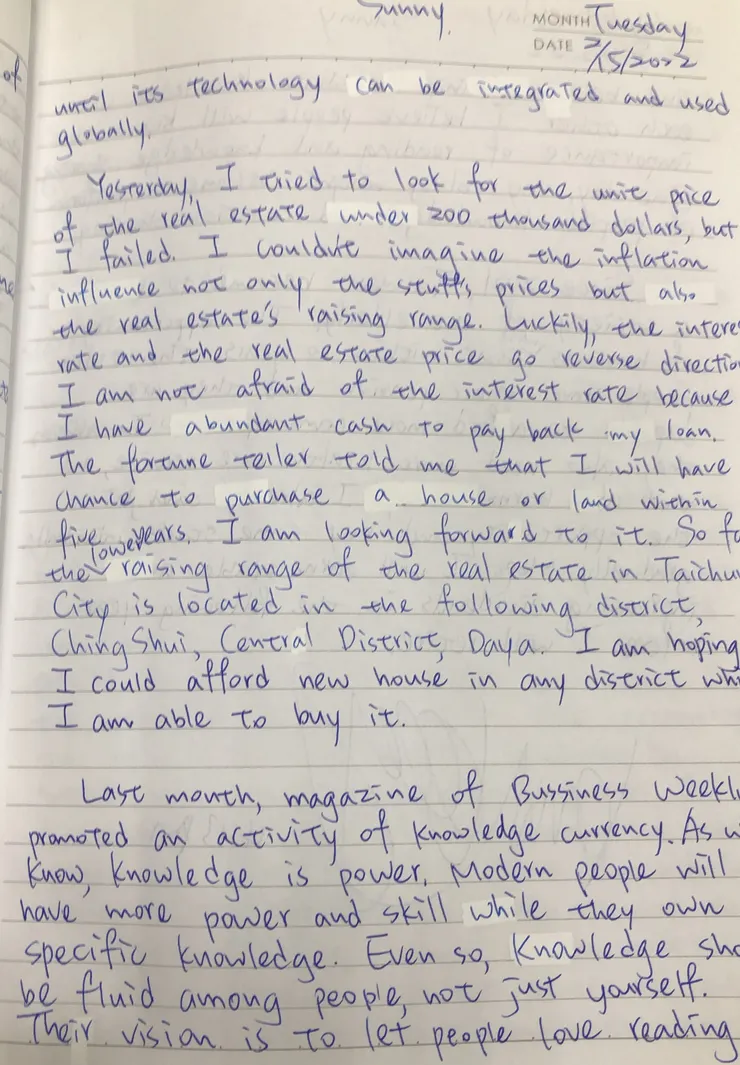 Sunny.
MONTH Tuesday
DATE 2/15/2022
of
until its technology can be integrated and used
globally.
Yesterday, I tried to look for the unit price
of the real estate under 200 thousand dollars, but
I failed. I couldn't imagine the inflation
influence not only the stuff's prices but also
the real estate's raising range. Luckily, the interes
rate and the real estate price go reverse directio
I am not afraid of the interest rate because
I have abundant cash to pay back my loan.
The fortune teller told me that I will have
chance to purchase a house or land within
five years. I am looking forward to it. So fa
the lower raising range of the real estate in Taichu
City is located in the following district,
Ching Shui, Central District, Daya. I am hoping
I could afford new house in any district whi
I am able to buy it.
Last month, magazine of Bussiness Weekl
promoted an activity of knowledge currency. As w
know, knowledge is power. Modern people will
have more power and skill while they own
specific knowledge. Even so, knowledge sho
be fluid among people, not just yourself.
Their vision is to let people love reading